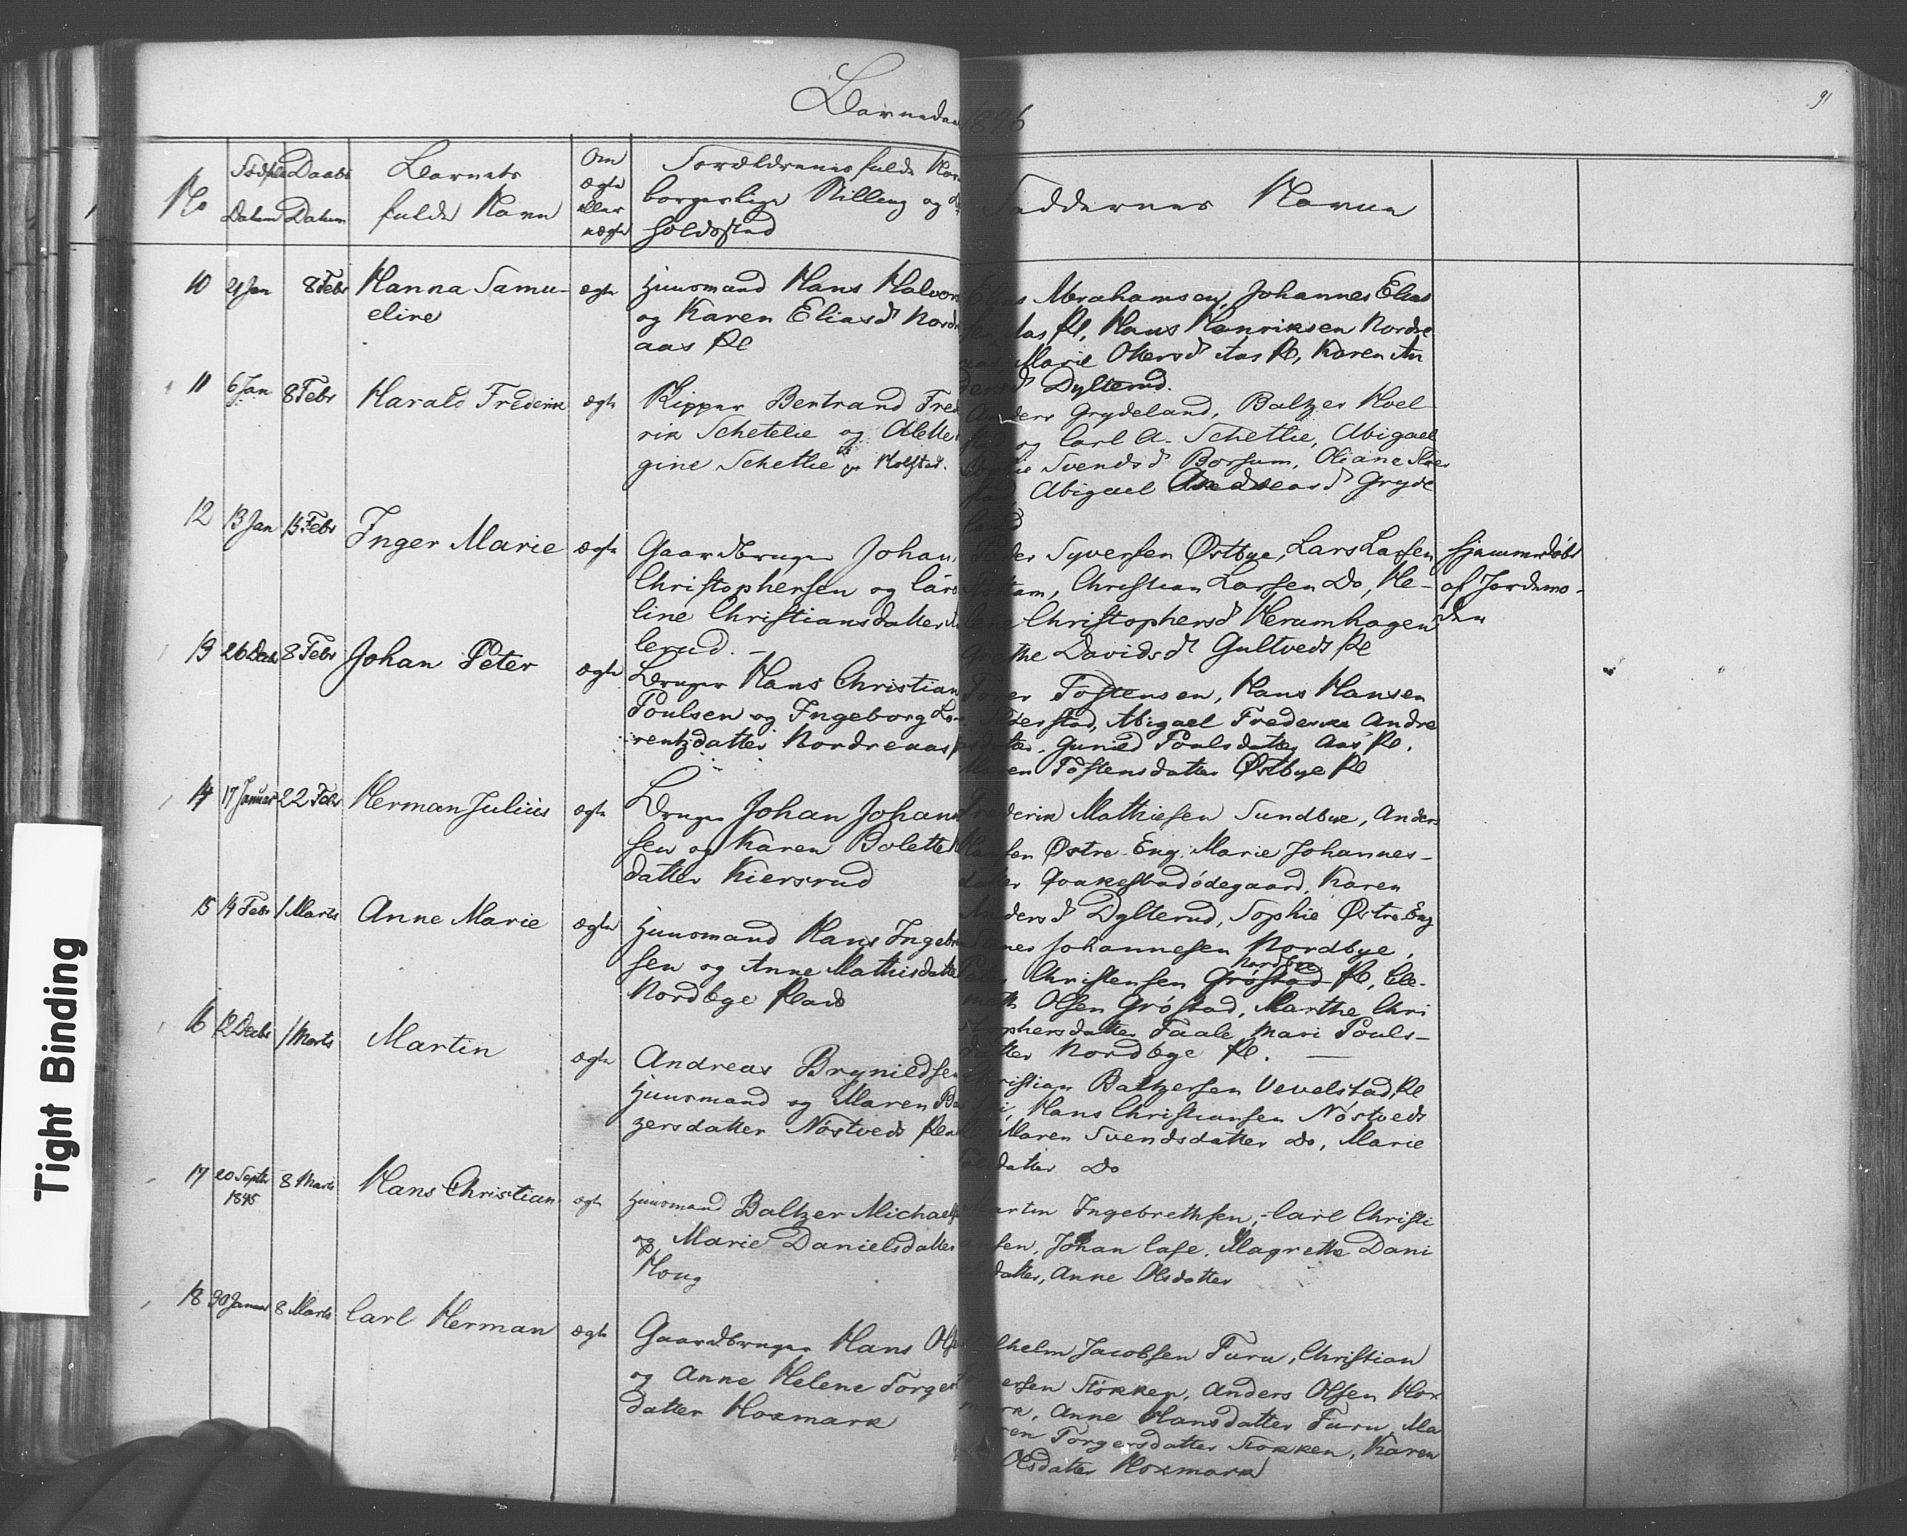 Barnedaab 1846
91
No
Fødsels Datum
Daabs Datum
Barnets fulde Navn
Om ægte eller uægte
Forældrenes fulde Nav
borgerlige Stilling og
holdssted
Faddernes Navne
10 21 Jan 8 Febr Hanna Samu-
eline
ægte
Huusmand Hans Halvors
og Karen Eliasd Nordre
aas Pl
Elias Abrahamsen, Johannes Elias
sen Aas Pl, Hans Henriksen Nordre
aas Marie Olersd Aas Pl, Karen An
dersd Dylterud.
11 6 Jan 8 Febr Harald Frederik
ægte
Skipper Bentrand Fred
rik Schetelie og Alette
gine Schetlie Holstad.
Anders Grydeland, Baltzer Hoel
og Carl A. Schetlie, Abigael
Svendsd Borsum, Oliane
stad, Abigael Andreasd Gryde
land
12 13 Jan 15 Febr Inger Marie
ægte
Gaardbruger Johan
Christophersen og Caro
line Christiansdatter
lerud. —
Peder Syversen Østbye, Lars Larsen
Christian Larsen Do, He-
lene Christophersd Herumhagen
Grethe Davidsd Gultvedt Pl
hjemmedøbt
af Jordemo-
den
13 26 Decbr 8 Febr Johan Peter
ægte
Bruger Hans Christian
Poulsen og Ingeborg Lau
rentzdatter Nordreaas
Torer Tostensen, Hans Hansen
Abigael Frederikke Andre
asdatter, Gunild Poulsdatter Aas Pl.
Maren Tostensdatter Østbye Pl
14 17 Januar 22 Febr Herman Julius
ægte
Bruger Johan Johann
sen og Karen Bolette
datter Kiersrud
Frederik Mathiesen Sundbye, Anders
Hansen Østre Eng. Marie Johannes-
datter Qvakestadødegaard, Karen
Andersd Dylterud, Sophie Østre Eng
15 14 Febr 1 Marts Anne Marie
ægte
Huusmand Hans Ingebre
sen og Anne Mathisdatter
Nordbye Plads
Stener Johannesen Nordbye,
Nordbye
Peter Christensen Grøstad Pl, Cle-
meth Olsen Grøstad, Marthe Chri
stophersdatter Faale, Mari Pouls-
datter Nordbye Pl. —
16 12 Decbr 1 Marts Martin
ægte
Andreas Brynildsen
Huusmand og Maren Bal
zersdatter Nøstvedt Plads
Christian Baltzersen Vevelstad Pl
Hans Christiansen Nøstvedt
Maren Svendsdatter Do, Marie
datter Do
17 20 Septbr
1845 8 Marts Hans Christian
ægte
Huusmand Baltzer Michaels
og Marie Danielsdatter
Houg
Martin Ingebrethsen, Carl Christi
ansen, Johan Case, Magrethe Dani
elsdatter, Anne Olsdatter
18 30 Januar 8 Marts Carl Herman
ægte
Gaardbruger Hans Ols
og Anne Helene Torger
datter Hoxmark
Wilhelm Jacobsen Furu, Christian
ersen Stokken, Anders Olsen Hox
mark, Anne Hansdatter Furu, Ma
ren Torgersdatter Stokken, Karen
Olsdatter Hoxmark
Tight Binding